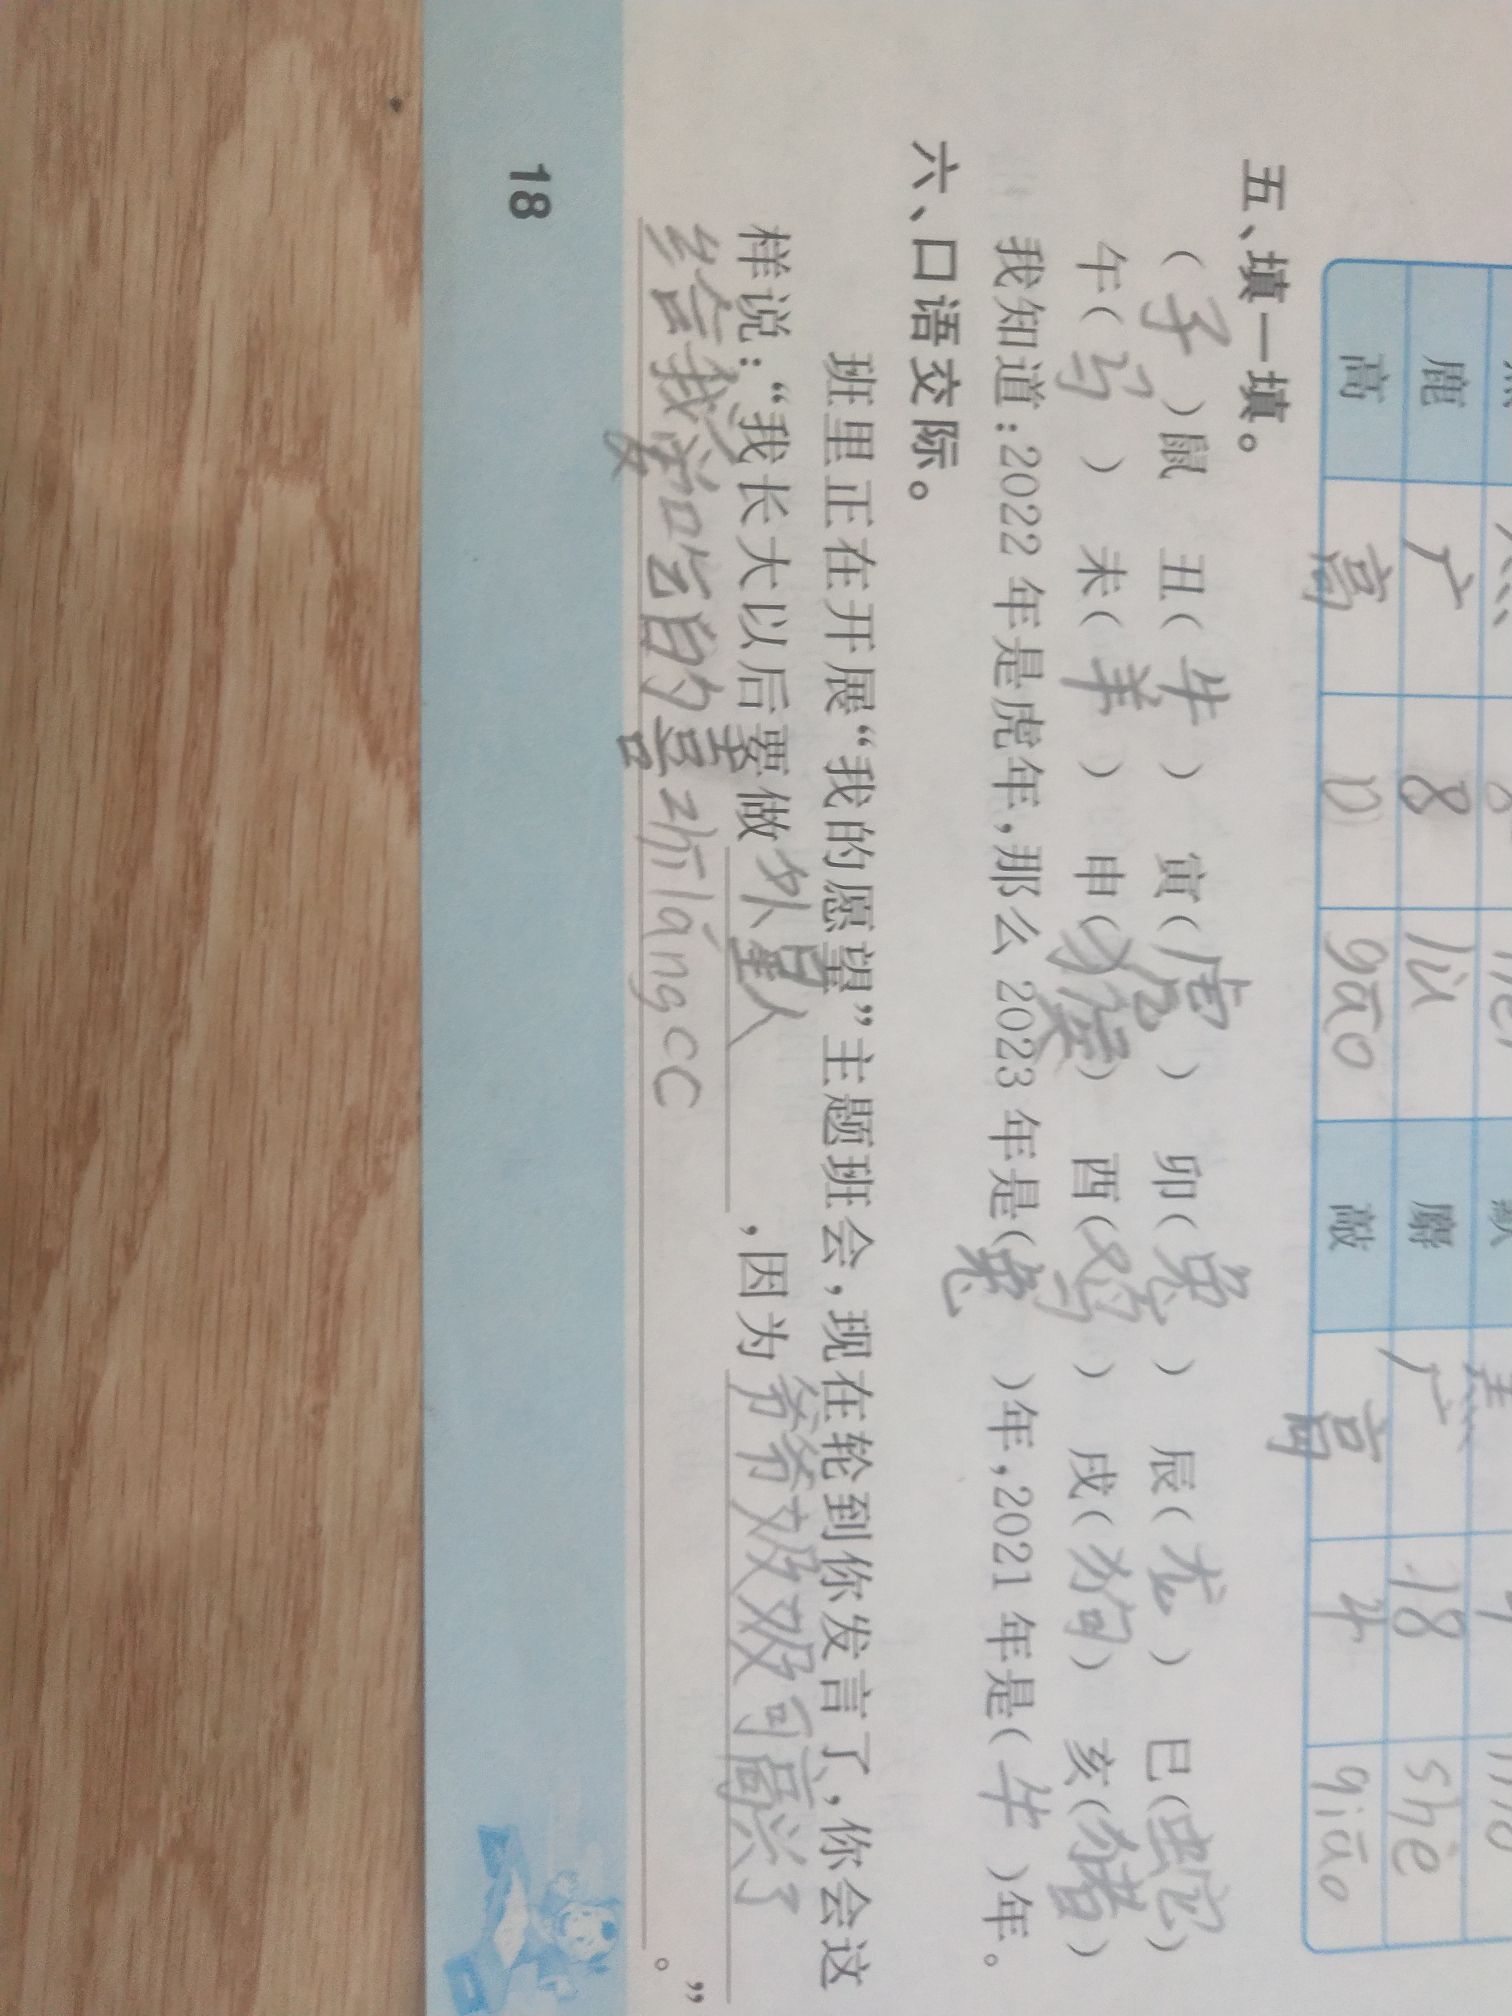 鹿 广 8 lù 麝 广 18 shè
高 高 10 gāo 敲 高 4 qiāo
五、填一填。
(子)鼠 丑(牛) 寅(虎) 卯(兔) 辰(龙) 巳(蛇)
午(马) 未(羊) 申(猴) 酉(鸡) 戌(狗) 亥(猪)
我知道:2022 年是虎年,那么 2023 年是(兔)年,2021 年是(牛)年。
六、口语交际。
班里正在开展“我的愿望”主题班会,现在轮到你发言了,你会这
样说:“我长大以后要做外星人,因为爷爷奴奴可高兴了
给我 的 zhī láng cc。”
18